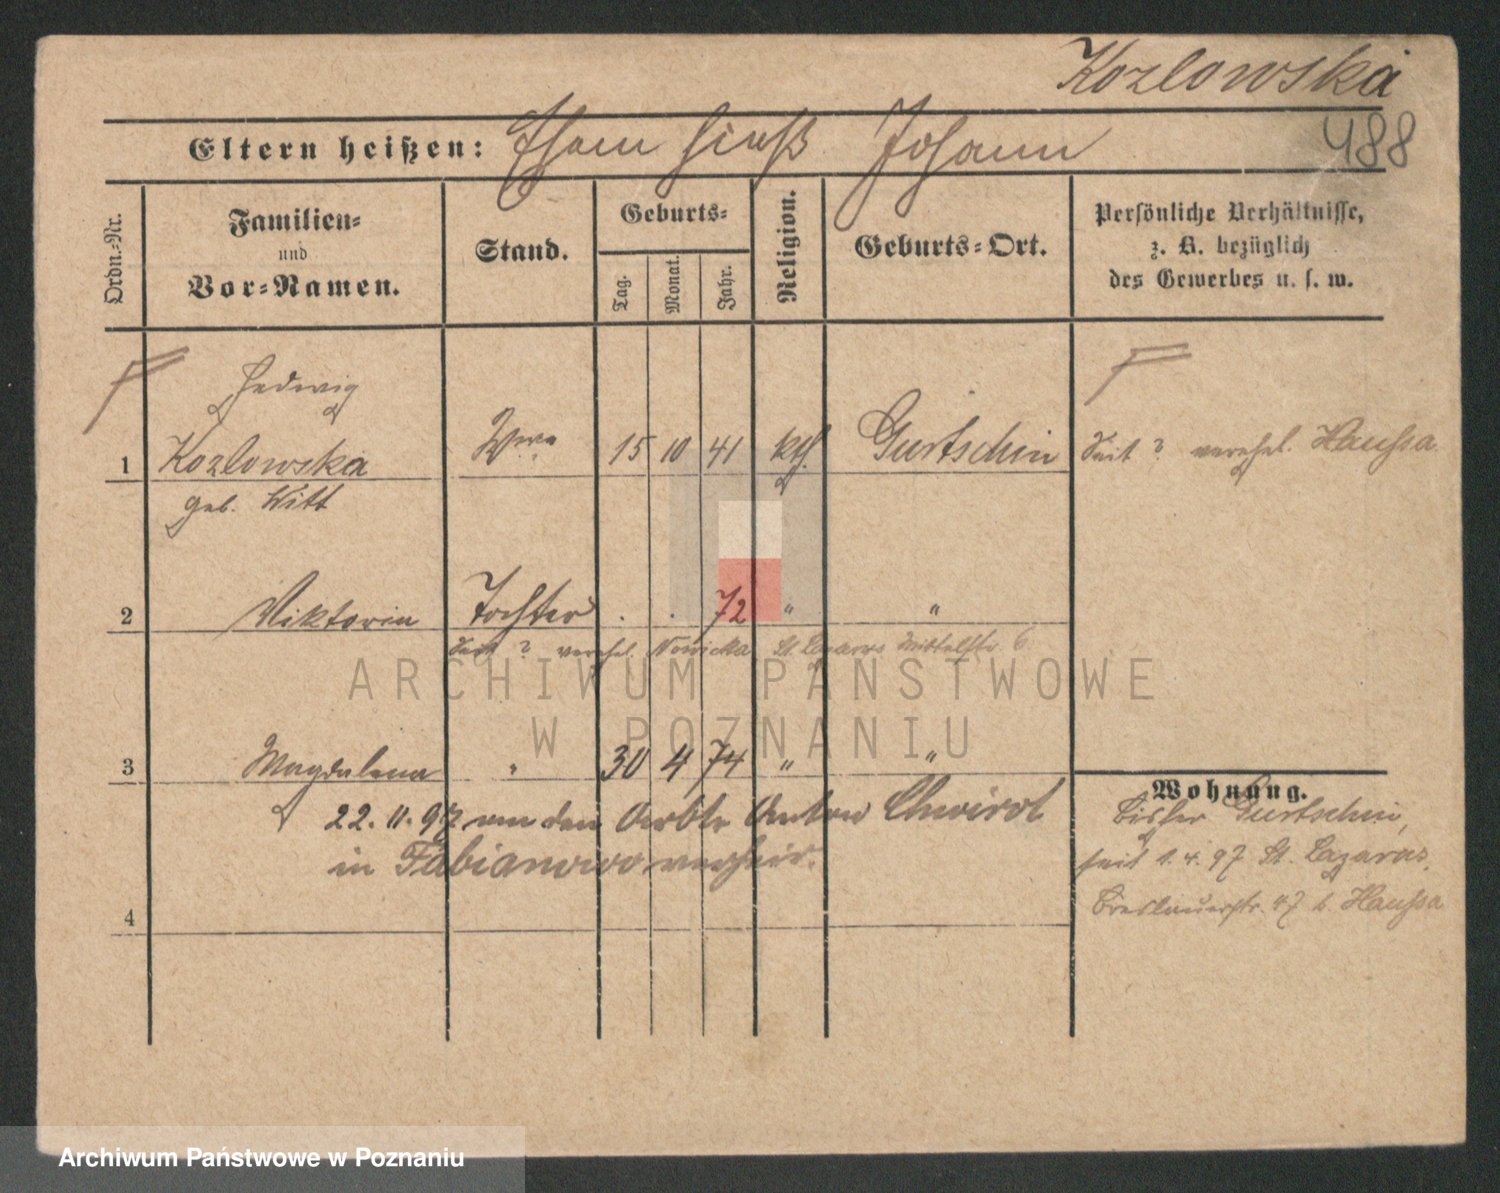 Kozlowska
488
Eltern heißen: Ehem hieß Johann
Ordn.=Nr.
Familien=
und
Vor=Namen.
Stand.
Geburts=
Tag.
Monat.
Jahr.
Religion.
Geburts=Ort.
Persönliche Verhältnisse,
z. B. bezüglich
des Gewerbes u. s. w.
Hedwig
1 Kozlowska Wwe 15 10 41 kth. Gurtschin Seit ? verehel. Haußa
geb. Witt
2 Viktoria Tochter . . 72 " "
Seit ? verehel. Nowicka St. Lazarus Mittelstr. 6
3 Magdalena " 30 4 74 " "
22. 11. 97 von den Anton Chwirot
in Fabianowo verheir.
4
Wohnung.
Bisher Gurtschin,
seit 1. 4. 97 St. Lazarus,
Breslauerstr. 47 b. Haußa
ARCHIWUM PAŃSTWOWE
W POZNANIU
Archiwum Państwowe w Poznaniu